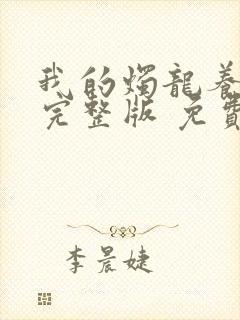 我的燭龍養
完整版 免費
李晨婕